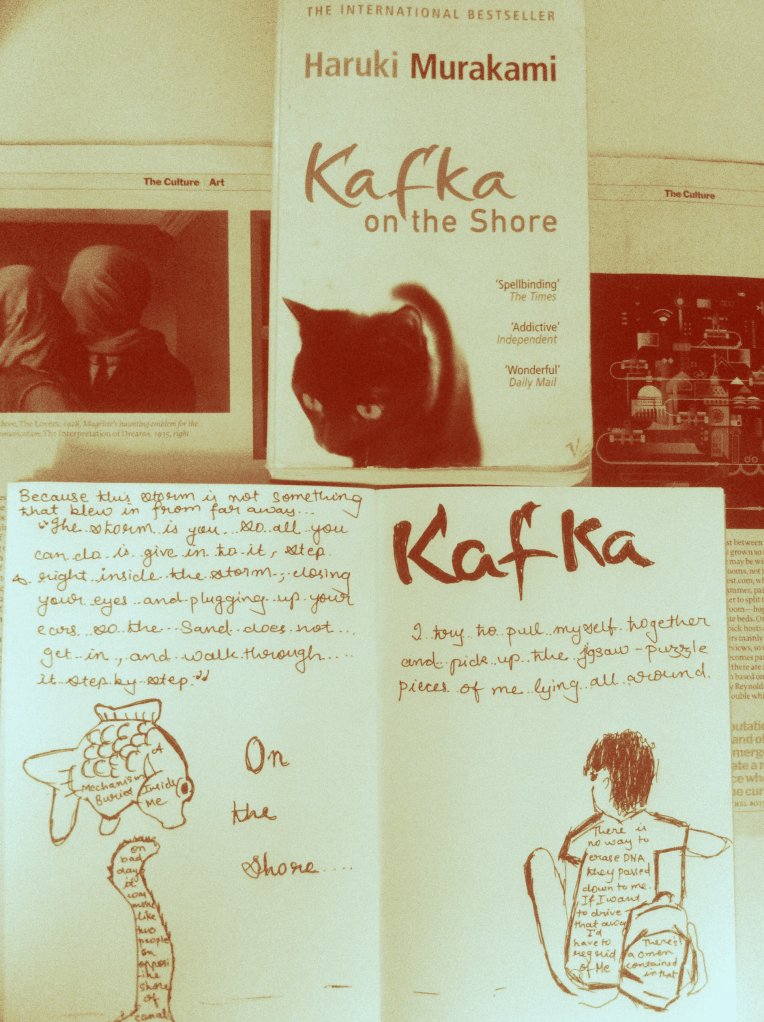 THE INTERNATIONAL BESTSELLER
Haruki Murakami
Kafka
on the Shore
'Spellbinding'
The Times
'Addictive'
Independent
'Wonderful'
Daily Mail
The Culture | Art
The Lovers, 1928, Magritte's haunting emblem for the
The Interpretation of Dreams, 1935, right
The Culture
Because this storm is not something
that blew in from far away...
"The storm is you... so all you
can do is give in to it, step
right inside the storm, closing
your eyes and plugging up your
ears so the Sand does not...
get in, and walk through....
it step by step."
A
Mechanism
Buried
Inside
Me
On
the
Shore....
on
bad
days
it
was
more
like
two
people
on
opposi
-te
shore
of
canal
Kafka
I try to pull myself together
and pick up the jigsaw-puzzle
pieces of me lying all around.
There is
no way to
erase DNA
they passed
down to me.
If I want
to drive
that away
I'd
have to
get rid
of Me
There's
a omen
contained
in that